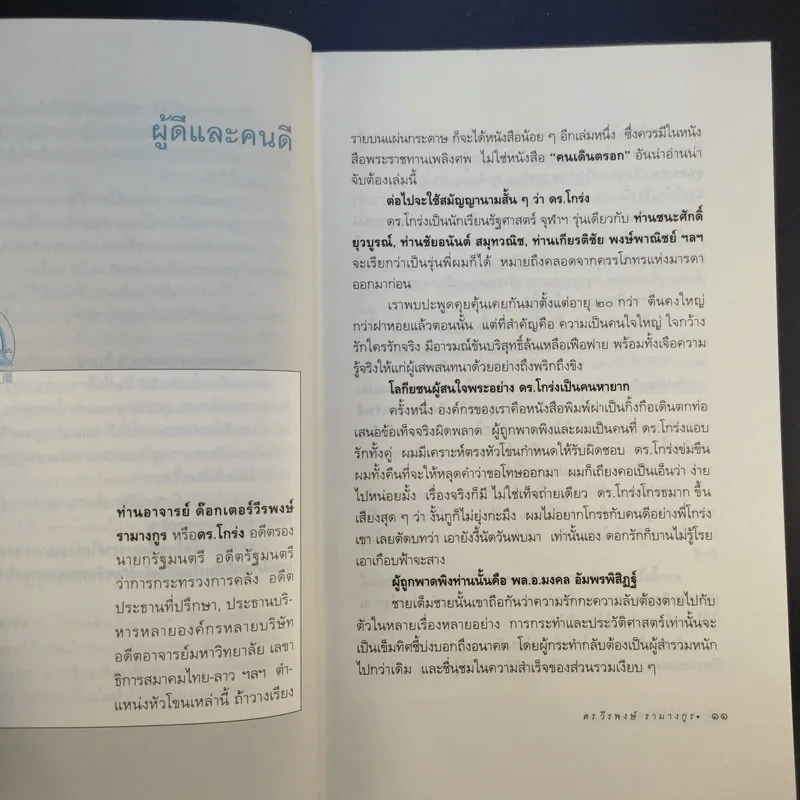 ผู้ดีและคนดี
ท่านอาจารย์ ด๊อกเตอร์วีรพงษ์
รามางกูร หรือดร.โกร่ง อดีตรอง
นายกรัฐมนตรี อดีตรัฐมนตรี
ว่าการกระทรวงการคลัง อดีต
ประธานที่ปรึกษา, ประธานบริ-
หารหลายองค์กรหลายบริษัท
อดีตอาจารย์มหาวิทยาลัย เลขา
ธิการสมาคมไทย-ลาว ฯลฯ ตำ-
แหน่งหัวโขนเหล่านี้ ถ้าวางเรียง
รายบนแผ่นกระดาษ ก็จะได้หนังสือน้อย ๆ อีกเล่มหนึ่ง ซึ่งควรมีในหนัง
สือพระราชทานเพลิงศพ ไม่ใช่หนังสือ “คนเดินตรอก” อันน่าอ่านน่า
จับต้องเล่มนี้
ต่อไปจะใช้สมัญญานามสั้น ๆ ว่า ดร.โกร่ง
ดร.โกร่งเป็นนักเรียนรัฐศาสตร์ จุฬาฯ รุ่นเดียวกับ ท่านชนะศักดิ์
ยุวบูรณ์, ท่านชัยอนันต์ สมุทวณิช, ท่านเกียรติชัย พงษ์พาณิชย์ ฯลฯ
จะเรียกว่าเป็นรุ่นพี่ผมก็ได้ หมายถึงคลอดจากครรโภทรแห่งมารดา
ออกมาก่อน
เราพบปะพูดคุยคุ้นเคยกันมาตั้งแต่อายุ ๒๐ กว่า ตีนคงใหญ่
กว่าฝาหอยแล้วตอนนั้น แต่ที่สำคัญคือ ความเป็นคนใจใหญ่ ใจกว้าง
รักใครรักจริง มีอารมณ์ขันบริสุทธิ์ล้นเหลือเฟือฟาย พร้อมทั้งเจือความ
รู้จริงให้แก่ผู้เสพสนทนาด้วยอย่างถึงพริกถึงขิง
โลกียชนผู้สนใจพระอย่าง ดร.โกร่งเป็นคนหายาก
ครั้งหนึ่ง องค์กรของเราคือหนังสือพิมพ์ฝาเป็นกิ้งกือเดินตกท่อ
เสนอข้อเท็จจริงผิดพลาด ผู้ถูกพาดพิงและผมเป็นคนที่ ดร.โกร่งแอบ
รักทั้งคู่ ผมมีเคราะห์ตรงหัวโขนกำหนดให้รับผิดชอบ ดร.โกร่งข่มขืน
ผมทั้งคืนที่จะให้หลุดคำว่าขอโทษออกมา ผมก็เถียงคอเป็นเอ็นว่า ง่าย
ไปหน่อยมั้ง เรื่องจริงก็มี ไม่ใช่เท็จถ่ายเดียว ดร.โกร่งโกรธมาก ขึ้น
เสียงสุด ๆ ว่า งั้นกูก็ไม่ยุ่งกะมึง ผมไม่อยากโกรธกับคนดีอย่างพี่โกร่ง
เขา เลยตัดบทว่า เอายังงี้นัดวันพบมา เท่านั้นเอง ดอกรักก็บานไม่รู้โรย
เอาเกือบฟ้าจะสาง
ผู้ถูกพาดพิงท่านนั้นคือ พล.อ.มงคล อัมพรพิสิฏฐ์
ชายเต็มชายนั้นเขาถือกันว่าความรักกะความลับต้องตายไปกับ
ตัวในหลายเรื่องหลายอย่าง การกระทำและประวัติศาสตร์เท่านั้นจะ
เป็นเข็มทิศชี้บ่งบอกถึงอนาคต โดยผู้กระทำกลับต้องเป็นผู้สำรวมหนัก
ไปกว่าเดิม และชื่นชมในความสำเร็จของส่วนรวมเงียบ ๆ
ดร.วีรพงษ์ รามางกูร• ๑๑